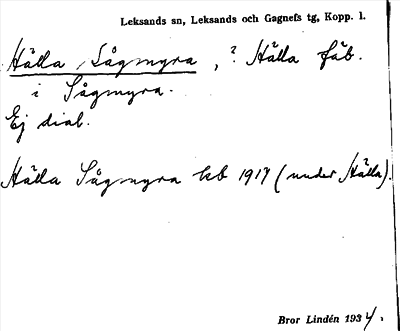 Leksands sn, Leksands och Gagnefs tg, Kopp. l.
Hälla, Sågmyra, ? Hälla fäb.
i Sågmyra.
Ej dial.
Hälla Sågmyra kb 1917 (under Hälla).
Bror Lindén 1934.